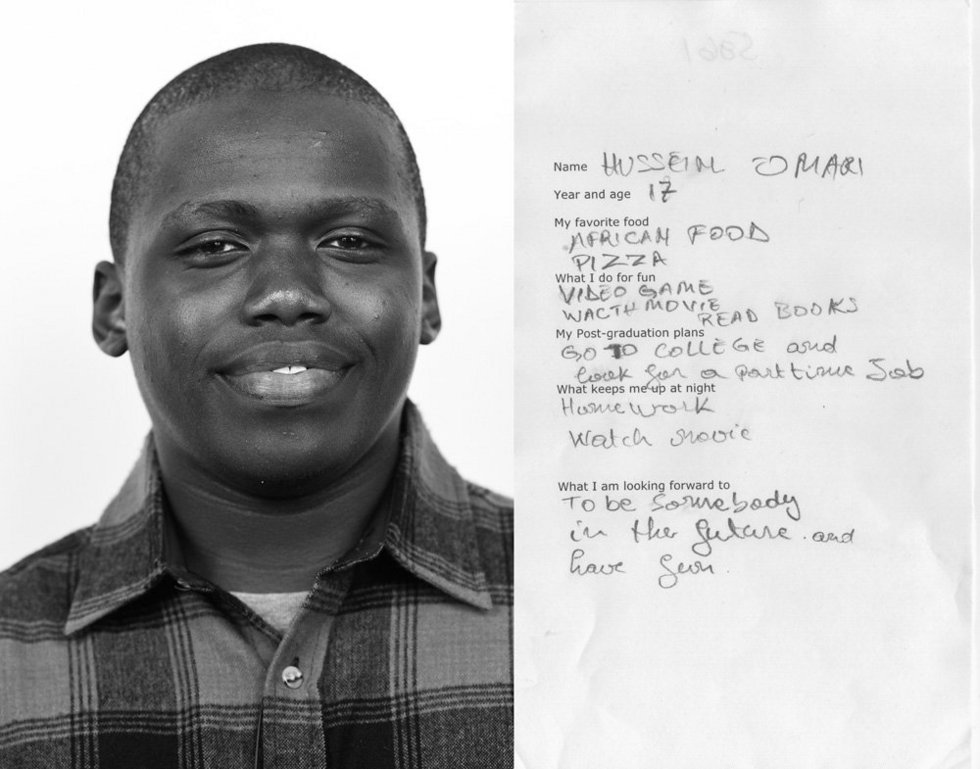 Name HUSSEIN OMARI
Year and age 17
My favorite food
AFRICAN FOOD
PIZZA
What I do for fun
VIDEO GAME
WACTH MOVIE
READ BOOKS
My Post-graduation plans
GO TO COLLEGE and
look for a part time Job
What keeps me up at night
Homework
Watch movie
What I am looking forward to
To be somebody
in the future. and
have fun.